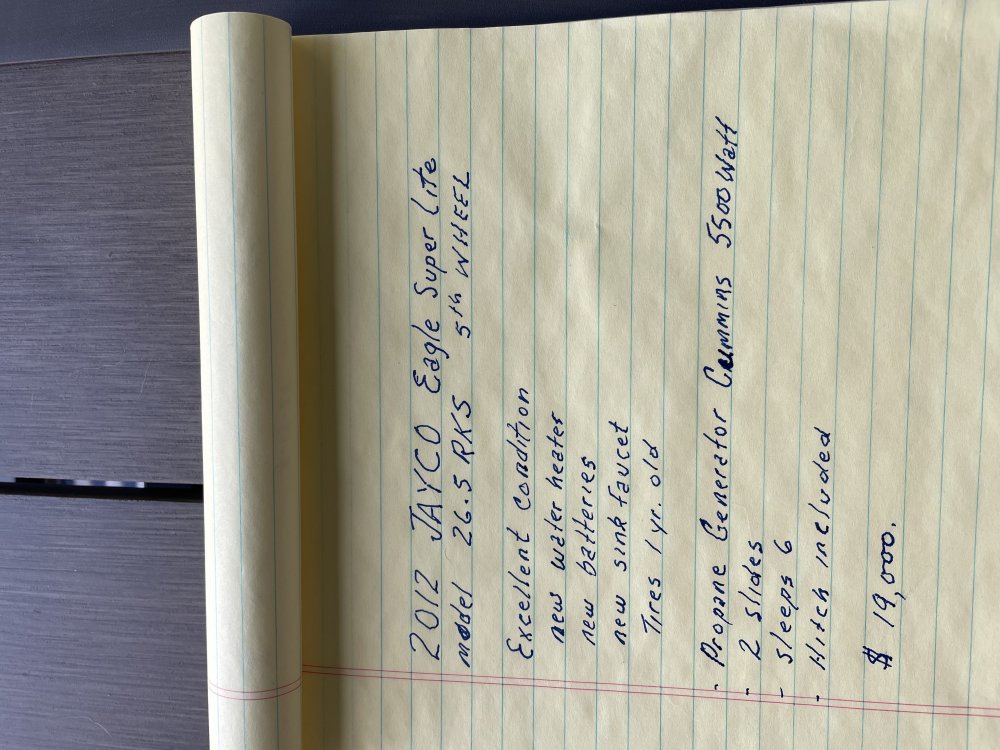 2012 JAYCO Eagle Super Lite
model 26.5 RKS 5th WHEEL
Excellent condition
new water heater
new batteries
new sink faucet
Tires 1 yr. old
- Propane Generator Cummins 5500 Watt
- 2 slides
- sleeps 6
- Hitch included
$ 19,000.